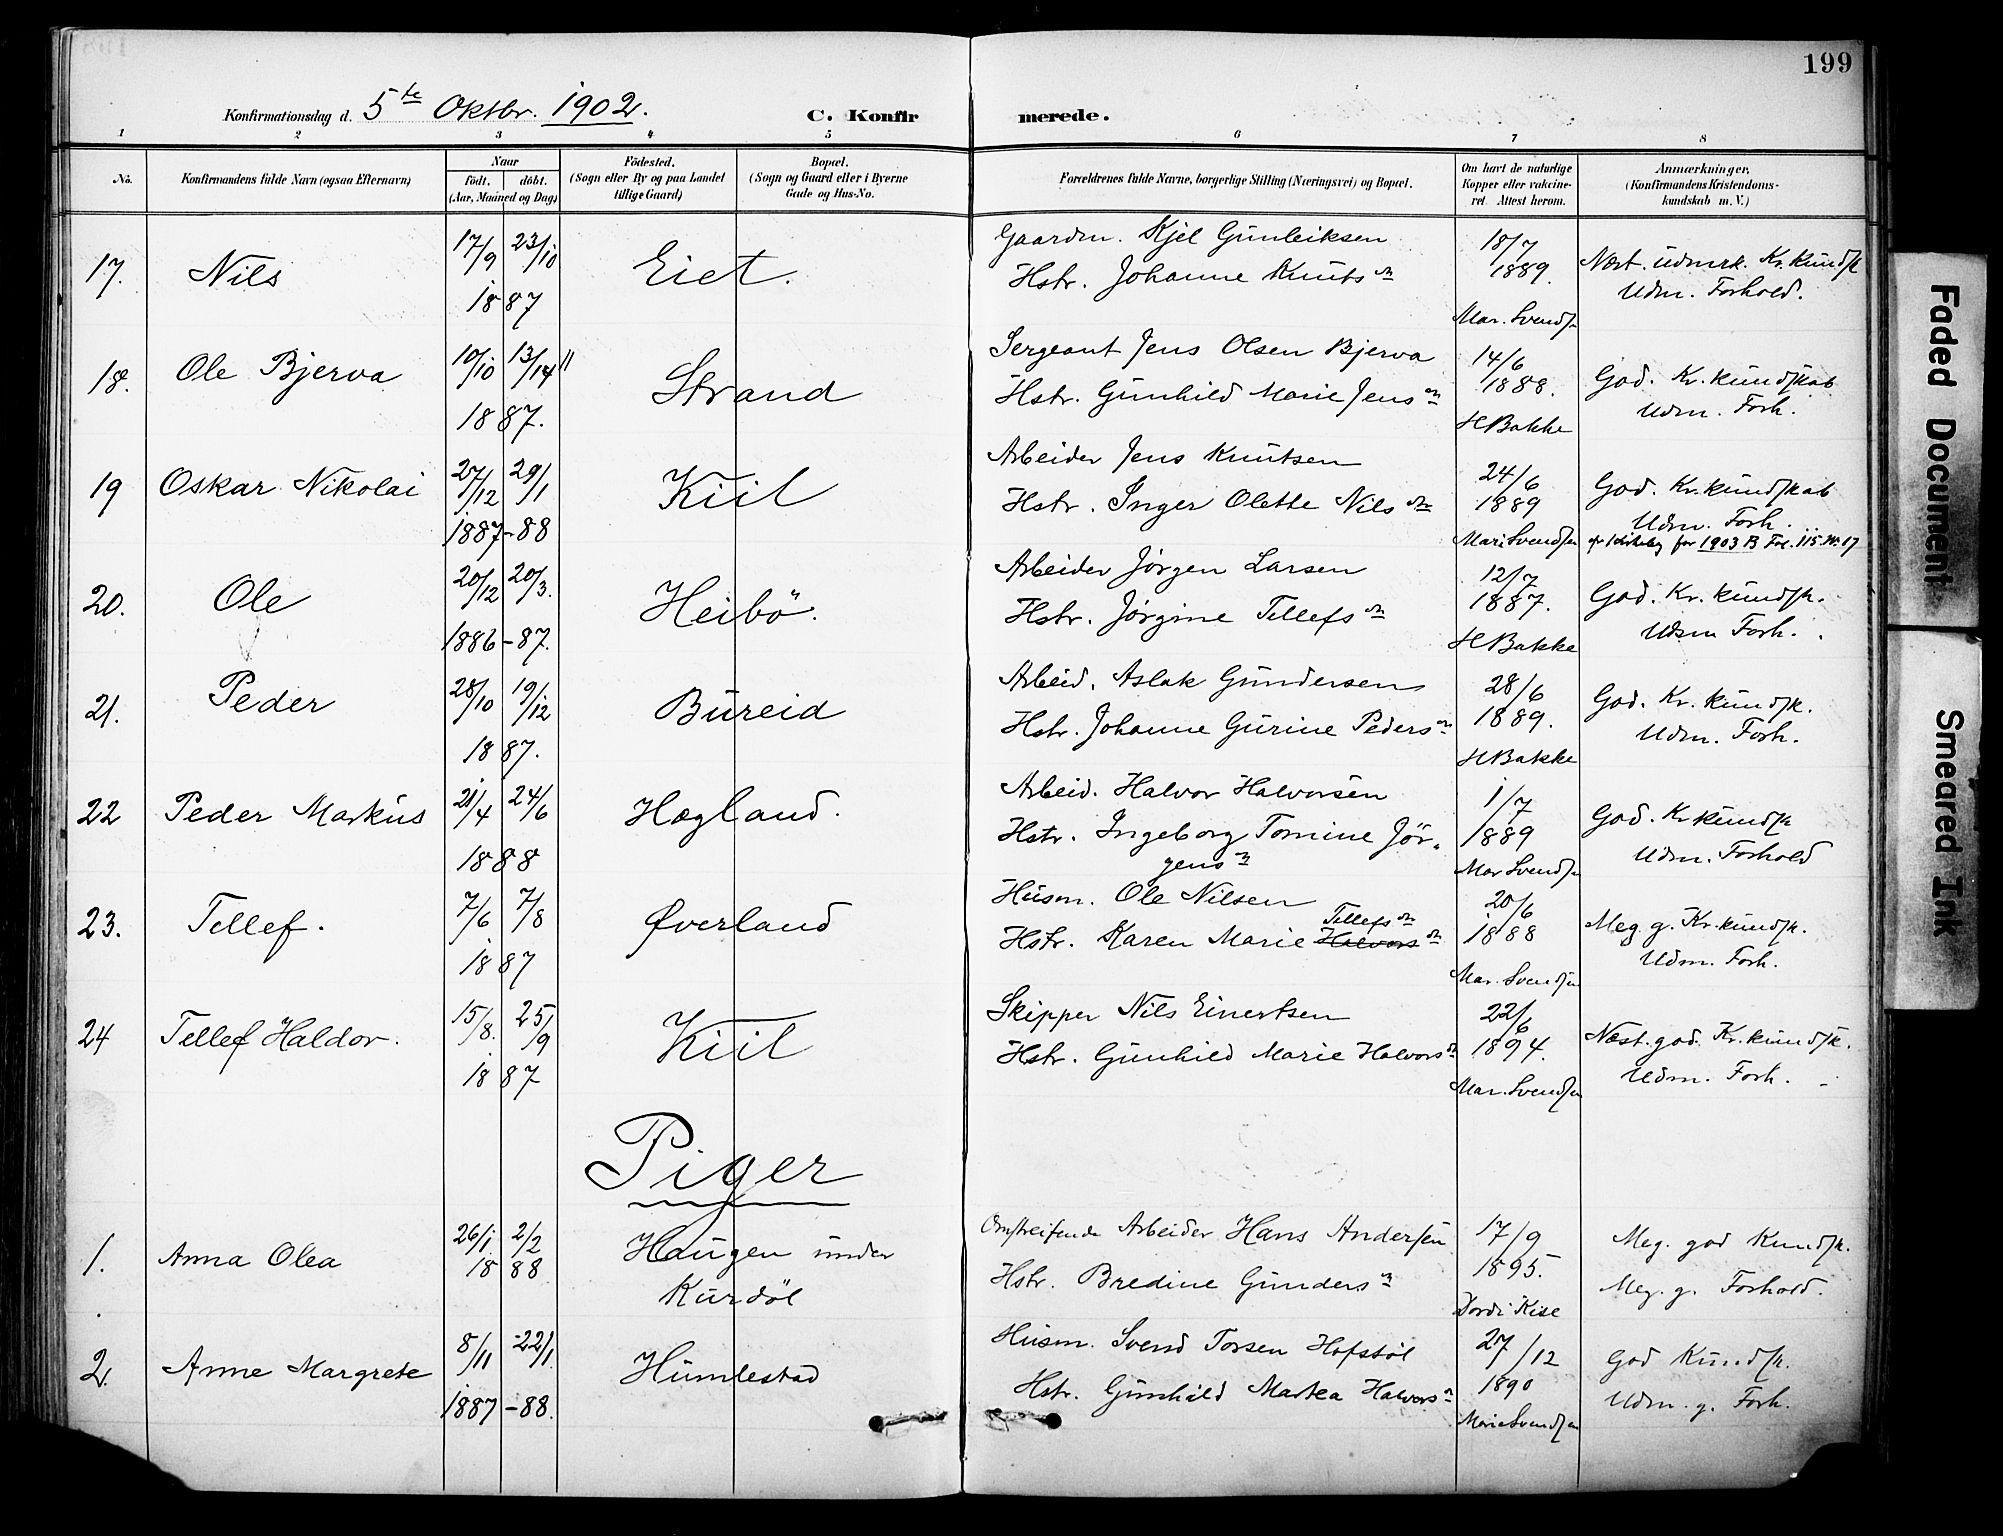 199
Konfirmationsdag d. 5te Oktbr. 1902. C. Konfirmerede.
1 2 3 4 5 6 7 8
No. Konfirmandens fulde Navn (ogsaa Efternavn) Naar födt. döbt. (Aar, Maaned og Dag) Födested. (Sogn eller By og paa Landet tillige Gaard) Bopæl. (Sogn og Gaard eller i Byerne Gade og Hus-No. Forældrenes fulde Navne, borgerlige Stilling (Næringsvei) og Bopæl. Om havt de naturlige Kopper eller vakcineret. Attest herom. Anmærkninger. (Konfirmandens Kristendomskundskab m. V.)
17. Nils 17/9 23/10 1887 Eiet. Gaardm. Kjel Gunleiksen 18/7 1889. Næst. udmrk. Kr. kundsk
Hstr. Johanne Knutsdn Mar. Svendsn Udm. Forhold.
18. Ole Bjerva 10/10 13/14 11 1887. Strand Sergeant Jens Olsen Bjerva 14/6 1888. God. Kr. kundskab
Hstr. Gunhild Marie Jensdn HBakke Udm. Forh.
19 Oskar Nikolai 27/12 29/1 1887-88 Kiil Arbeider Jens Knutsen 24/6 1889 God. Kr. kundskab
Hstr. Inger Olette Nilsdn Mari Svendsen Udm. Forh.
for 1903 B Fol. 115. Nr. 17
20. Ole 20/12 20/3. 1886-87. Heibö. Arbeider Jörgen Larsen 12/7 1887. God. Kr. kundsk.
Hstr. Jørgine Tellefsdn HBakke Udm Forh.
21. Peder 28/10 19/12 1887. Bureid Arbeid. Aslak Gundersen 28/6 1889. God. Kr. kundsk.
Hstr. Johanne Gurine Pedersdn HBakke Udm. Forh.
22 Peder Markus 21/4 24/6 1888 Hægland. Arbeid. Halvor Halvorsen 1/7 1889 God. Kr kundsk
Hstr. Ingeborg Tomine Jör-
gensdn Mar Svendsn Udm. Forhold
23. Tellef. 7/6 7/8 1887 Øverland Husm. Ole Nilsen 20/6 1888 Meg. g. Kr. kundsk.
Hstr. Karen Marie Halvorsdn Tellefsdn Mar. Svendsen Udm. Forh.
24 Tellef Haldor. 15/8. 25/9 1887 Kiil Skipper Nils Einertsen 22/6 1894. Næst. god. Kr. kundsk.
Hstr. Gunhild Marie Halvorsdn Mar. Svendsen Udm. Forh.
Piger
1. Anna Olea 26/1 2/2 1888 Haugen under Kurdöl Omstreifende Arbeider Hans Andersen 17/9 1895. Meg. god Kundsk.
Hstr. Bredine Gundersdn Dordi Kise Meg. g. Forhold.
2. Anne Margrete 8/11 22/1. 1887-88. Humlestad Husm. Svend Torsen Hofstöl 27/12 1890 God Kundsk.
Hstr. Gunhild Martea Halvorsdn Marie Svendsen Udm. g. Forh.
Faded Document
Smeared Ink